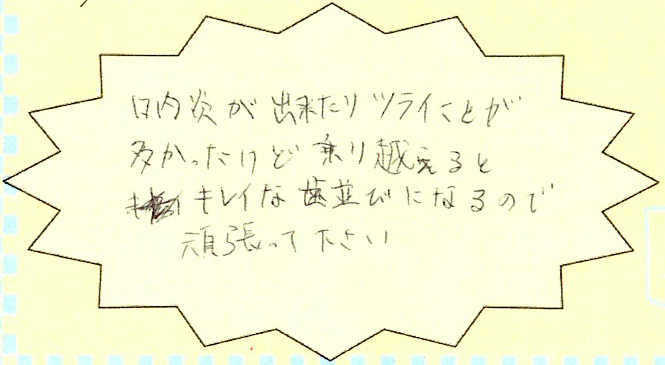 口内炎が出来たりツライことが
多かったけど乗り越えると
キレイな歯並びになるので
頑張って下さい